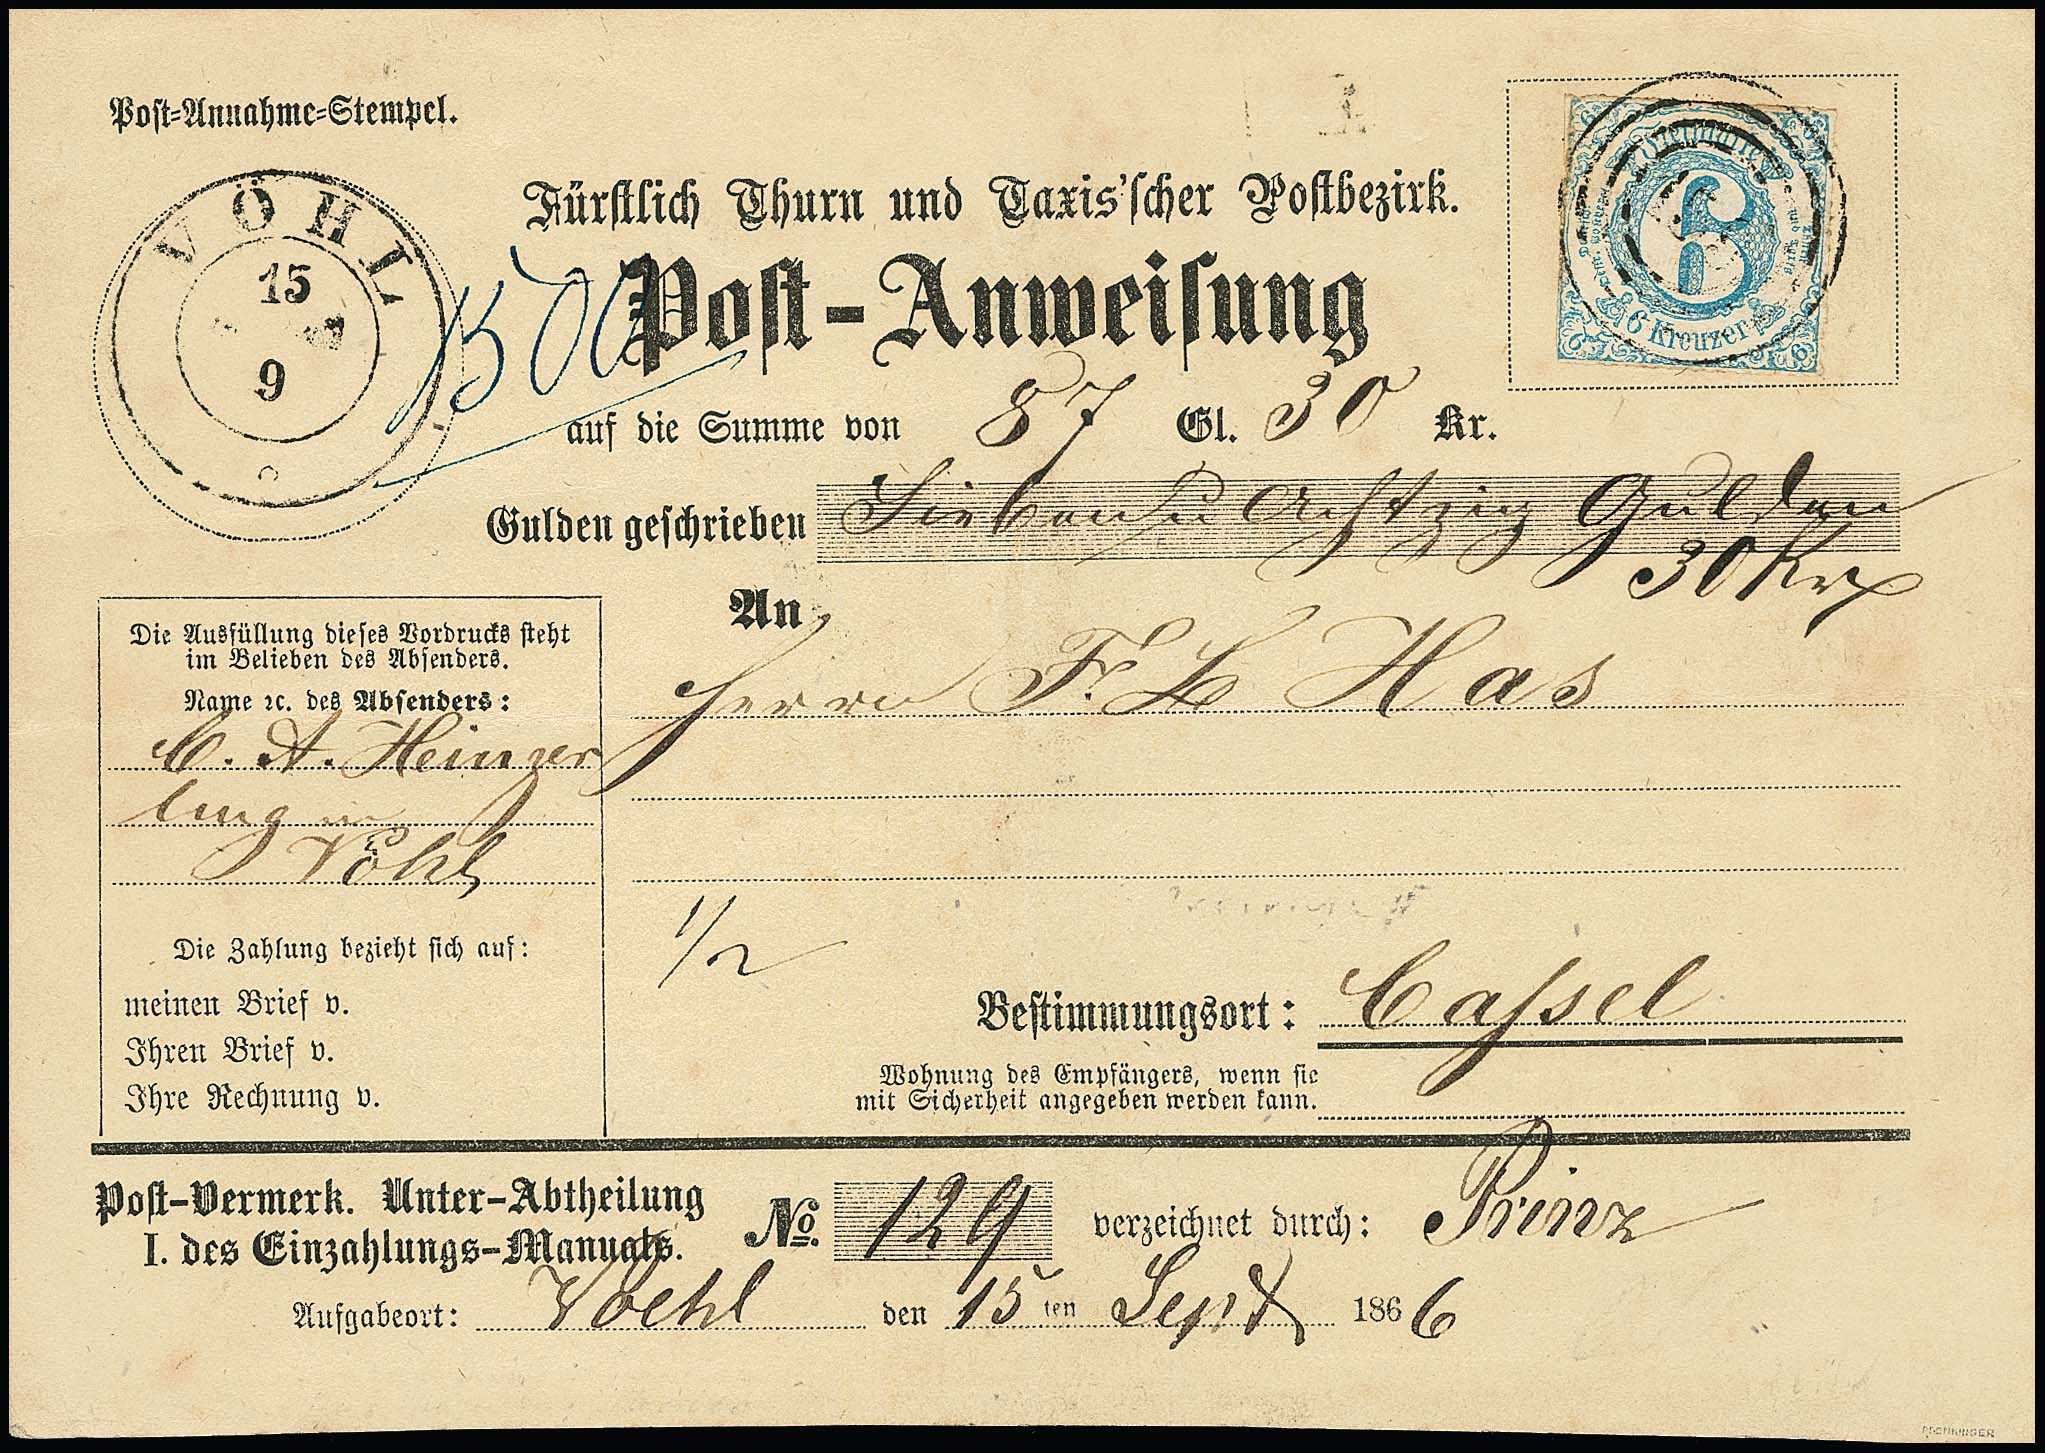 Post-Annahme-Stempel.
VÖHL
15
9
Fürstlich Thurn und Taxis'scher Postbezirk.
1500
Post-Anweisung
6
6 Kreuzer
auf die Summe von 87 Gl. 30 Kr.
Gulden geschrieben Sieben u Achtzig Gulden
30 Kr
An
Herrn Fr. L Has
Die Ausfüllung dieses Vordrucks steht
im Belieben des Absenders.
Name ꝛc. des Absenders:
C. A. Heinzer
ling in
Vöhl
1/2
Die Zahlung bezieht sich auf:
meinen Brief v.
Ihren Brief v.
Ihre Rechnung v.
Bestimmungsort: Cassel
Wohnung des Empfängers, wenn sie
mit Sicherheit angegeben werden kann.
Post-Vermerk. Unter-Abtheilung
I. des Einzahlungs-Manuals.
No. 129 verzeichnet durch: Prinz
Aufgabeort: Voehl den 15 ten Sept 1866